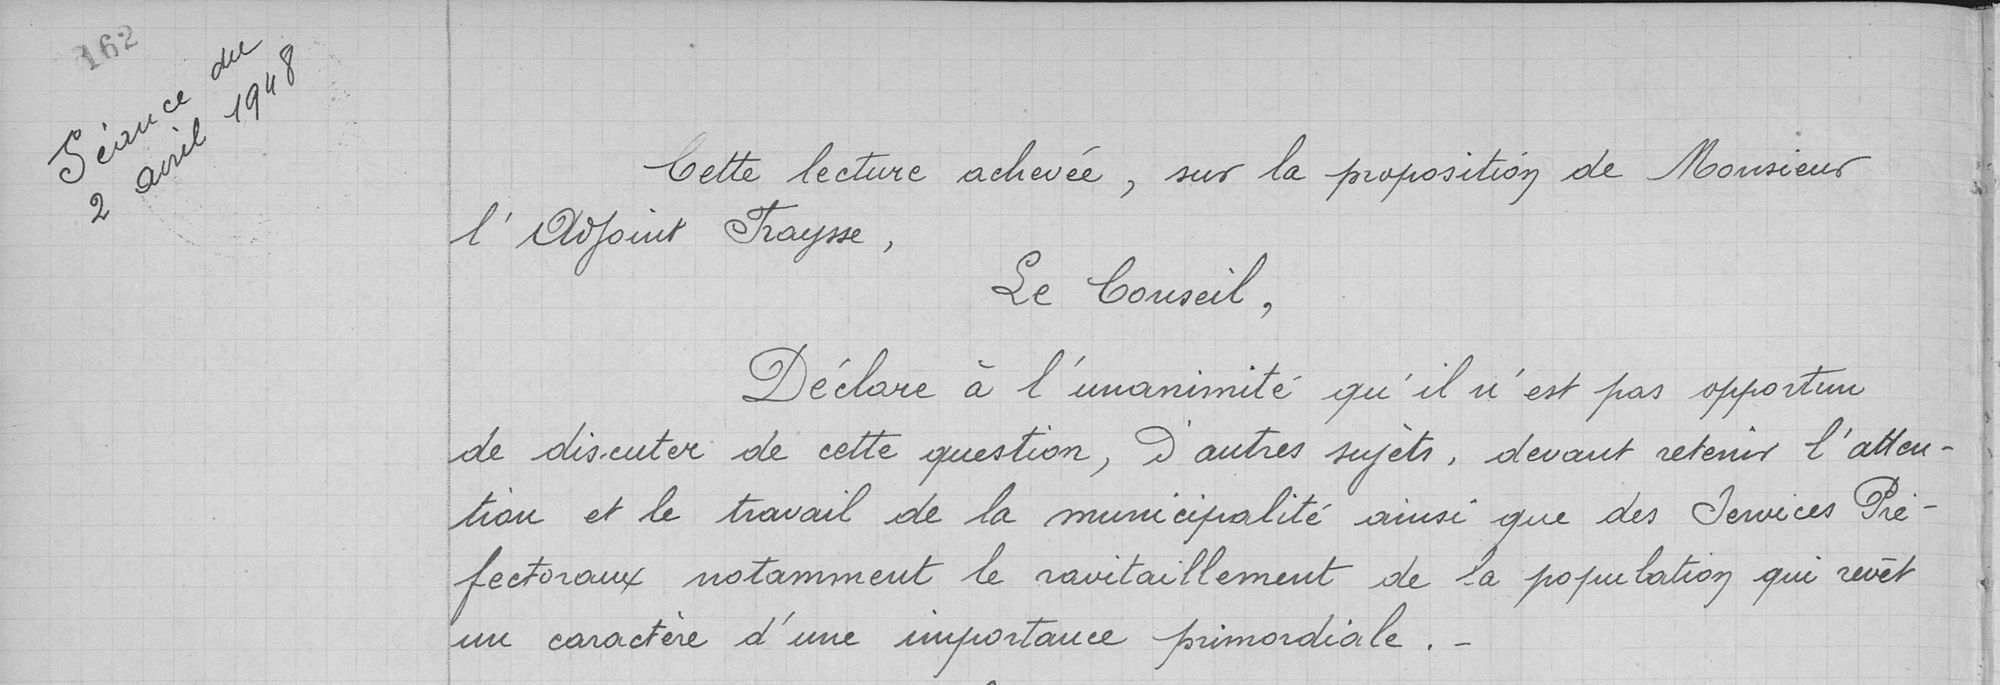 162
Séance du
2 avril 1948
Cette lecture achevée, sur la proposition de Monsieur
l'Adjoint Fraysse,
Le Conseil,
Déclare à l'unanimité qu'il n'est pas opportun
de discuter de cette question, d'autres sujèts, devant retenir l'atten-
tion et le travail de la municipalité ainsi que des Services Pré-
fectoraux notamment le ravitaillement de la population qui revêt
un caractère d'une importance primordiale.-